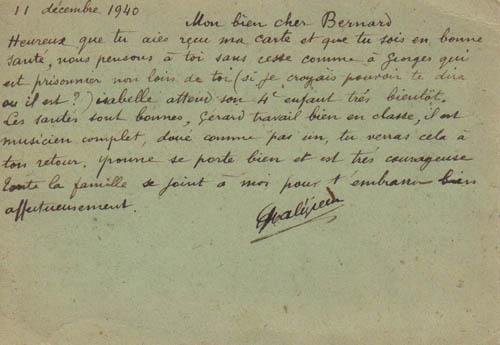 11 décembre 1940
Mon bien cher Bernard
Heureux que tu aies reçu ma carte et que tu sois en bonne
santé, nous pensons à toi sans cesse comme à Georges qui
est prisonnier non loin de toi (si je croyais pouvoir te dire
où il est ?) isabelle attend son 4e enfant très bientôt.
Les santés sont bonnes, Gérard travail bien en classe, il est
musicien complet, doué comme pas un, tu verras cela à
ton retour. Yvonne se porte bien et est très courageuse
toute la famille se joint à moi pour t'embrasser bien
affectueusement.